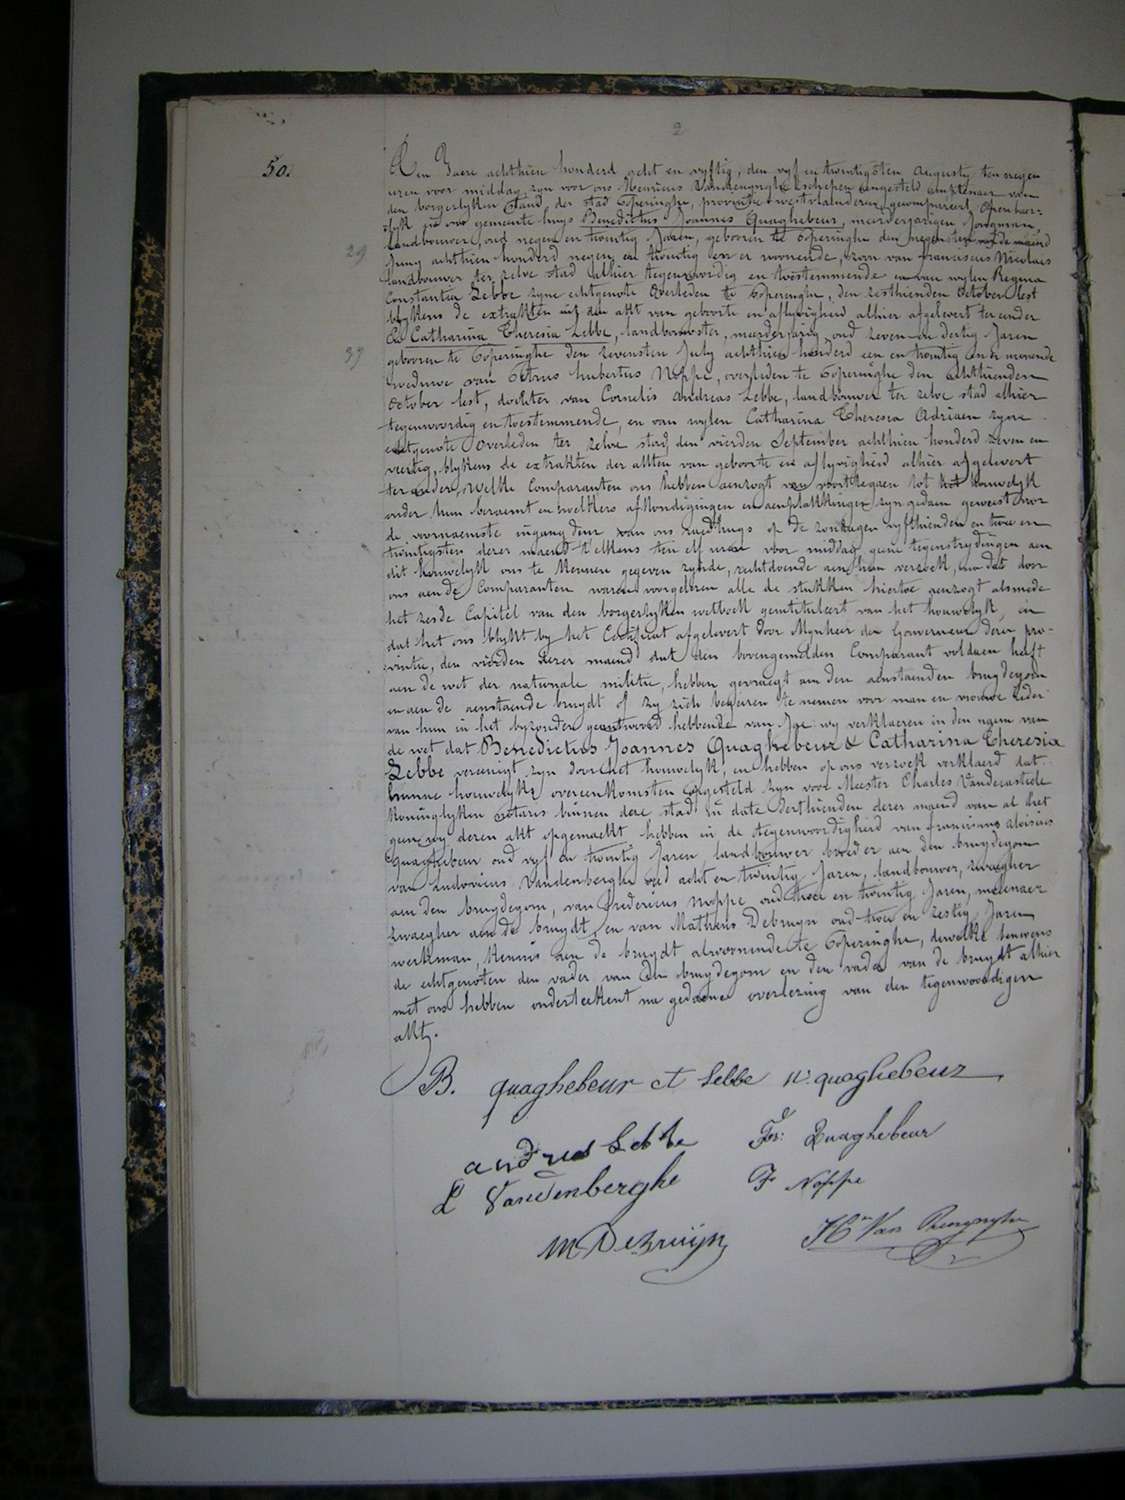 2
50.
Den Jaere achthien honderd acht en vyftig, den vyf en twintigsten Augusty ten negen
uren voor middag, zyn voor ons Henricus Schepen aengesteld amptenaer van
den borgerlyken Stand, der stad Poperinghe, provintie westvlaenderen gecompareert, Openbaer-
lyk in ons gemeente huys Benedictus Joannes Quaghebeur, meerderjarigen Jongman,
29
landbouwer, oud negen en twintig Jaren, gebooren te Poperinghe den negensten van de maend
Juny achthien honderd negen en twintig en er woonende, zoon van franciscus Nicolaus
landbouwer ter zelve stad alhier tegenwoordig en toestemmende en van wylen Regina
Constantia Lebbe zyne echtgenote Overleden te Poperinghe, den zesthienden October lest
blykens de extrakten uit den akt van geboorte en aflyvigheid alhier afgelevert ter eender
& Catharina Theresia Lebbe, landbouwster, meerderjarig, oud zeven en dertig Jaren
33
gebooren te Poperinghe den zevensten July achthien honderd een en twintig en er woonende
weduwe van Petrus hubertus Noppe, overleden te Poperinghe den achthienden
October lest, dochter van Cornelis Andreas Lebbe, landbouwer ter zelve stad alhier
tegenwoordig en toestemmende, en van wylen Catharina Theresia Adriaen zyne
echtgenote Overleden ter zelve stad den vierden September achthien honderd zeven en
veertig, blykens de extrakten der akten van geboorte en aflyvigheid alhier afgelevert
ter ander, Welke Comparanten ons hebben aenzogt van voorttegaen tot het houwelyk
onder hun beraemt en welkers afkondigingen en aenplakkingen zyn gedaen geweest voor
de voornaemste ingang deur van ons raedhuys op de zondagen vyfthienden en twee en
twintigsten dezer maend t'elkens ten elf uren voor middag, geene tegenstrydingen aen
dit houwelyk ons te kennen gegeven zynde, rechtdoende aen hun verzoek, na dat door
ons aen de Comparanten waren voorgelezen alle de stukken hiertoe aenzogt alsmede
het zesde Capitel van den borgerlyken wetboek geintituleert van het houwelyk, en
dat het ons blykt by het Certificat afgelevert door Mynheer den Gouverneur dezer pro-
vintie, den vierden dezer maend dat den bovengemelden Comparant voldaen heeft
aen de wet der nationale militie, hebben gevraegt aen den aenstaenden bruydegom
en aen de aenstaende bruydt of zy zich begeeren te nemen voor man en vrouwe ieder
van hun in het byzonder geantwoord hebbende van Ja: wy verklaeren in den naem van
de wet dat Benedictus Joannes Quaghebeur & Catharina Theresia
Lebbe vereenigt zyn door het houwelyk, en hebben op ons verzoek verklaerd dat
hunne houwelyks overeenkomsten opgesteld zyn voor Meester Charles Vandecasteele
koninglyken Notaris binnen deze stad in date derthienden dezer maend van al het
gene wy dezen akt opgemaekt hebben in de tegenwoordigheid van franciscus aloisius
Quaghebeur oud vyf en twintig Jaren, landbouwer broeder aen den bruydegom
van Ludovicus Vandenberghe oud acht en twintig Jaren, landbouwer, zwaegher
aen den bruydegom, van Fredericus Noppe oud twee en twintig Jaren, meulenaer
zwaegher aen de bruydt, en van Matheus Debruyn oud twee en zestig Jaren
werkman, kennis aen de bruydt alwoonende te Poperinghe, dewelke benevens
de echtgenoten den vader van den bruydegom en den vader van de bruydt alhier
met ons hebben onderteekent na gedaene overlezing van den tegenwoordigen
akt.
B. quaghebeur ct Lebbe N: quaghebeur
andries Lebbe Fs: Quaghebeur
L Vandenberghe F Noppe
M DeBruijn